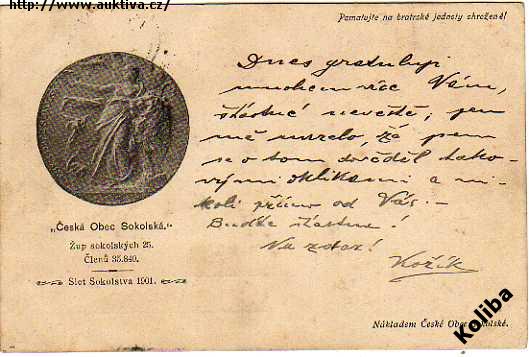 http://www.auktiva.cz/
Pamatujte na bratrské jednoty ohrožené!
Dnes gratuluji
mnohem více Vám,
šťastné nevěstě; jen
mě mrzelo, že jsem
se o tom dověděl tako-
vými oklikami a ni-
koli přímo od Vás. —
Buďte šťastna!
Na zdar!
Kožík
„Česká Obec Sokolská."
Žup sokolských 25.
Členů 35.840.
Slet Sokolstva 1901.
Nákladem České Obce Sokolské.
Koliba